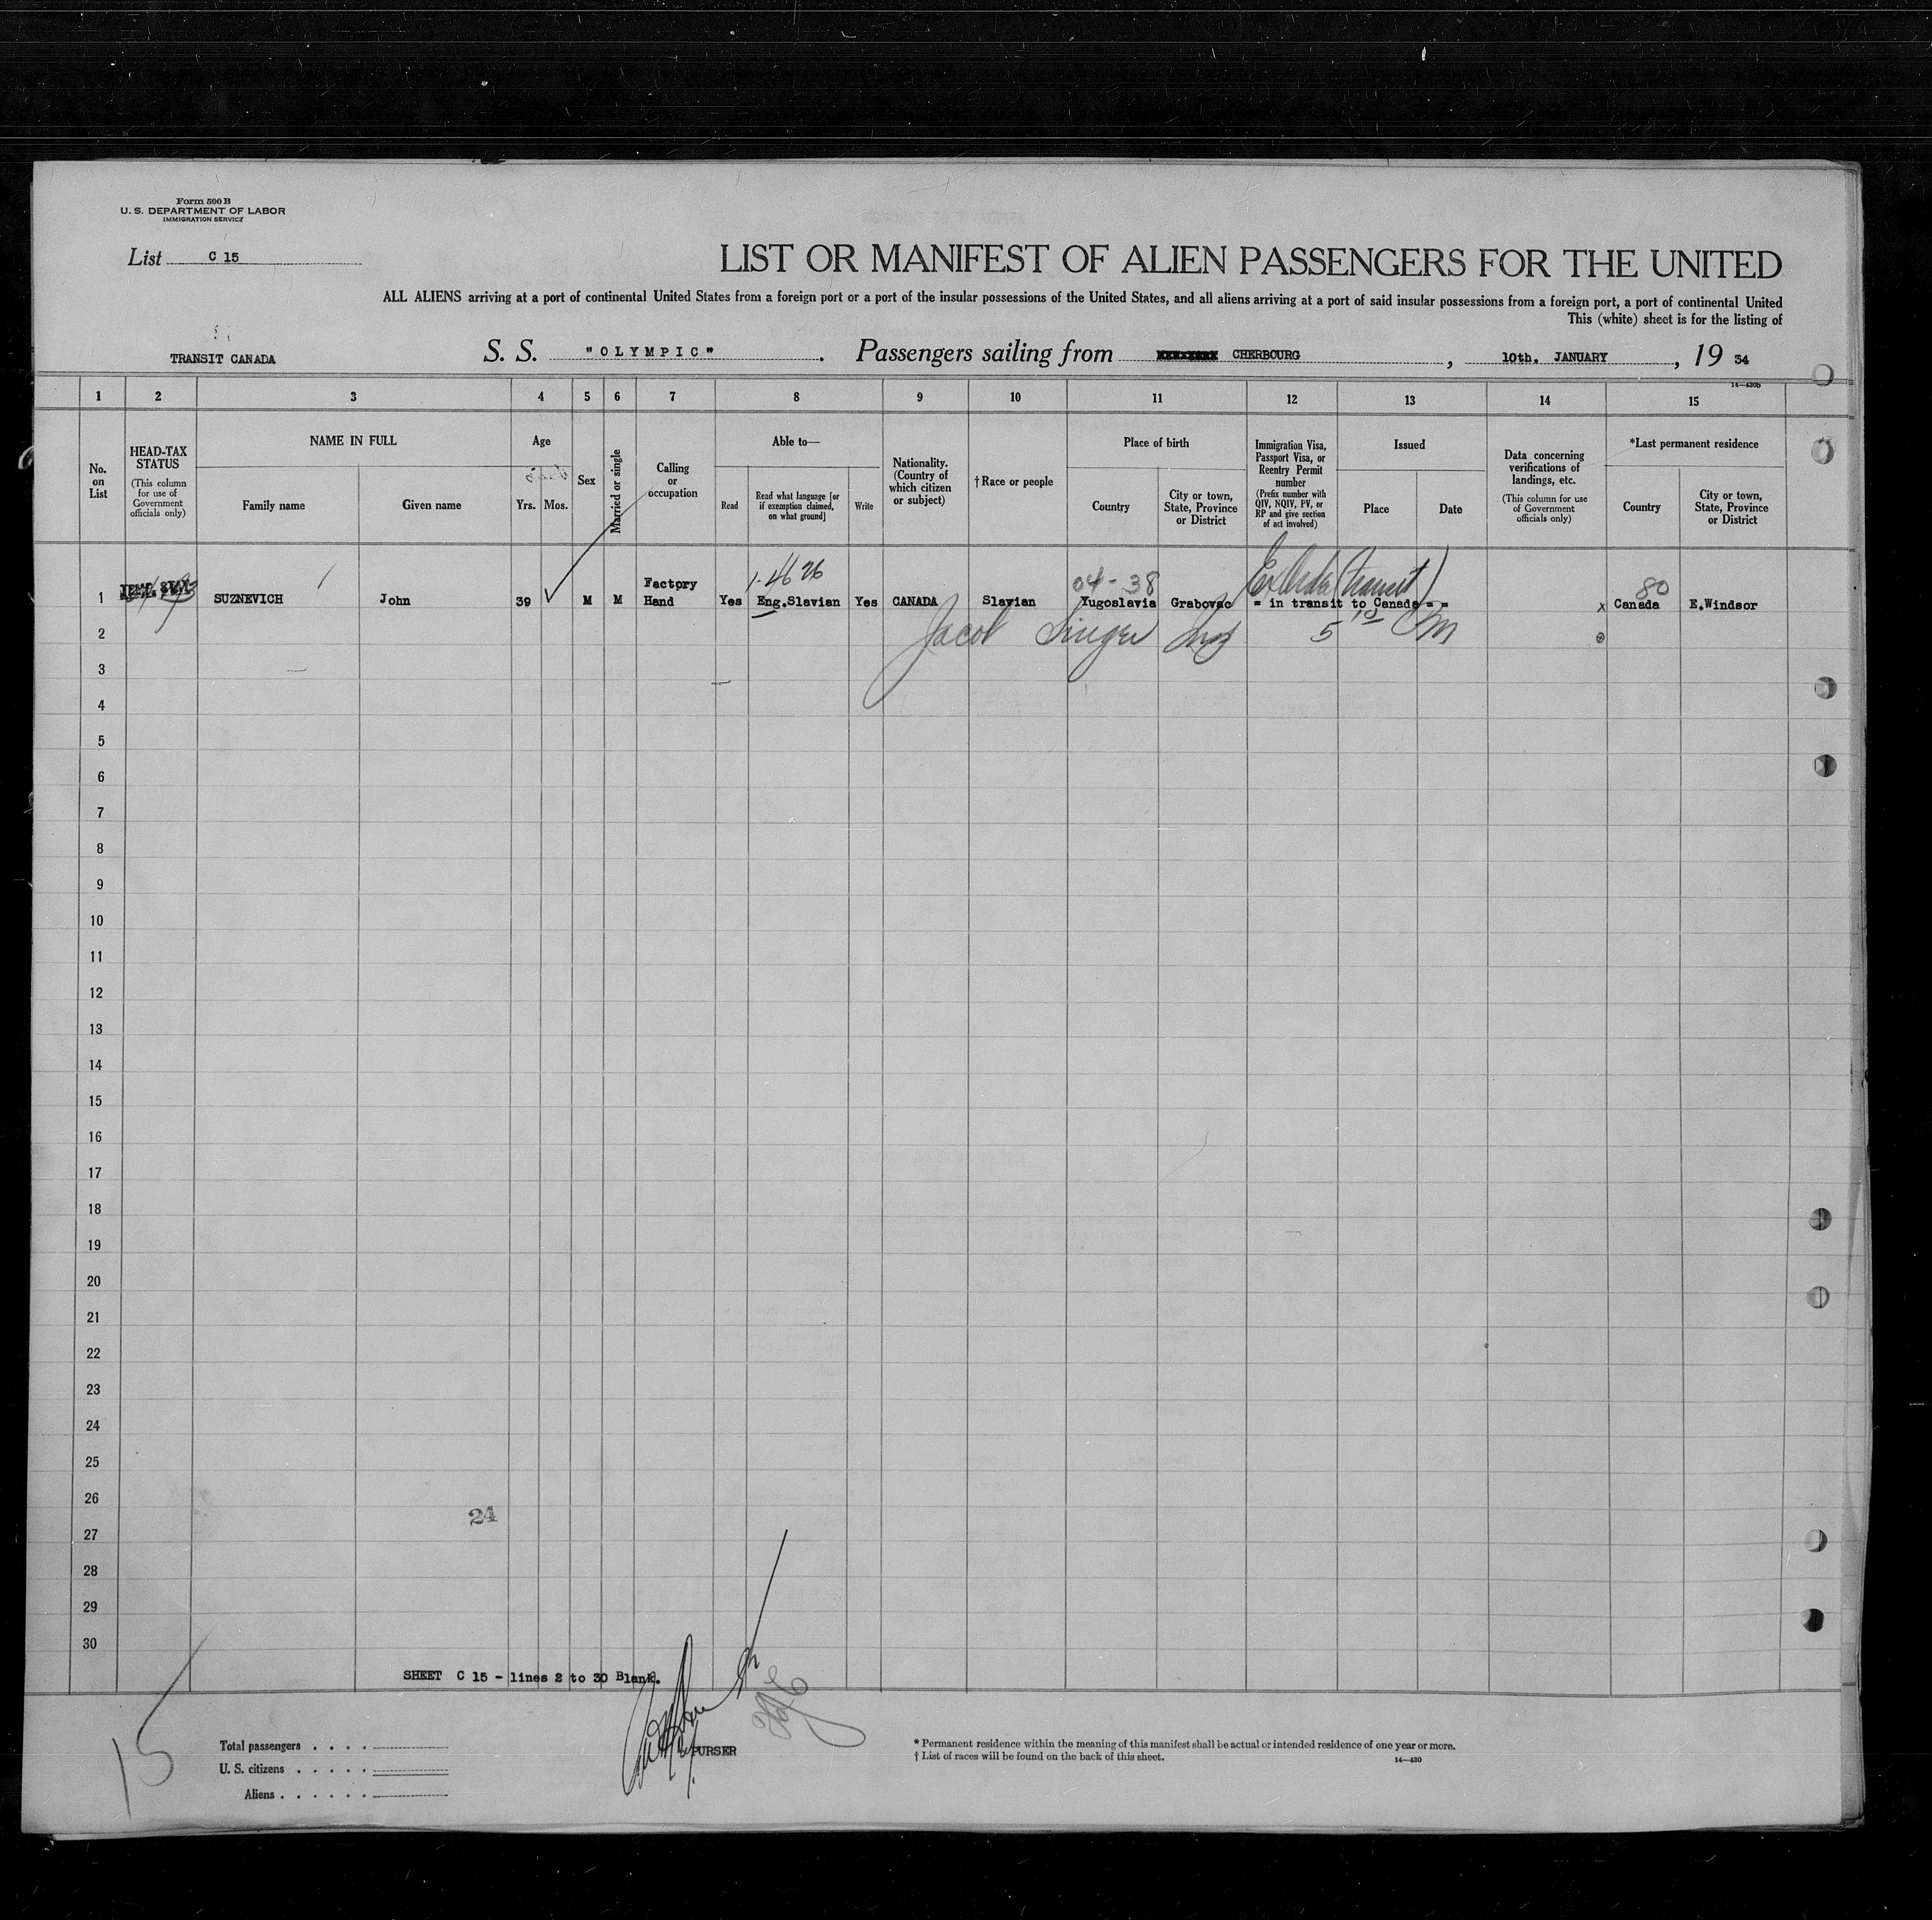 Form 500 B
U. S. DEPARTMENT OF LABOR
IMMIGRATION SERVICE
List C 15
LIST OR MANIFEST OF ALIEN PASSENGERS FOR THE UNITED
ALL ALIENS arriving at a port of continental United States from a foreign port or a port of the insular possessions of the United States, and all aliens arriving at a port of said insular possessions from a foreign port, a port of continental United
This (white) sheet is for the listing of
TRANSIT CANADA S. S. "OLYMPIC". Passengers sailing from CHERBOURG, 10th. JANUARY, 19 34
14—430b
1 2 3 4 5 6 7 8 9 10 11 12 13 14 15
No. on List
HEAD-TAX STATUS
(This column for use of Government officials only)
NAME IN FULL
Family name Given name
Age
Yrs. Mos.
Sex
Married or single
Calling or occupation
Able to—
Read
Read what language [or if exemption claimed, on what ground]
Write
Nationality. (Country of which citizen or subject)
†Race or people
Place of birth
Country
City or town, State, Province or District
Immigration Visa, Passport Visa, or Reentry Permit number
(Prefix number with QIV, NQIV, PV, or RP and give section of act involved)
Issued
Place Date
Data concerning verifications of landings, etc.
(This column for use of Government officials only)
*Last permanent residence
Country
City or town, State, Province or District
04-38
80
1 SUZNEVICH John 39 M M Factory Hand Yes Eng.Slavian Yes CANADA Slavian Yugoslavia Grabovac = in transit to Canada = = x Canada E.Windsor
Jacob Singer Insp
2
3
4
5
6
7
8
9
10
11
12
13
14
15
16
17
18
19
20
21
22
23
24
25
26
24
27
28
29
30
SHEET C 15 - lines 2 to 30 Blank.
15
Total passengers . . . .
U. S. citizens . . . . .
Aliens . . . . . .
PURSER
* Permanent residence within the meaning of this manifest shall be actual or intended residence of one year or more.
† List of races will be found on the back of this sheet.
14—430